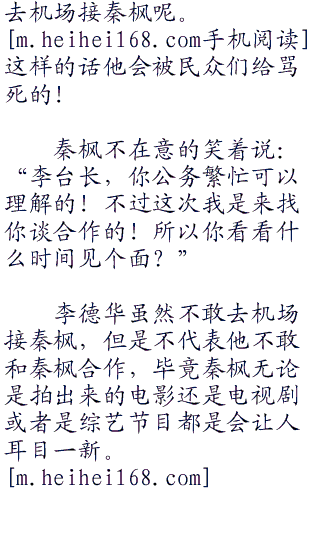 去机场接秦枫呢。
[m.heihei168.com手机阅读]
这样的话他会被民众们给骂
死的！
秦枫不在意的笑着说：
“李台长，你公务繁忙可以
理解的！不过这次我是来找
你谈合作的！所以你看看什
么时间见个面？”
李德华虽然不敢去机场
接秦枫，但是不代表他不敢
和秦枫合作，毕竟秦枫无论
是拍出来的电影还是电视剧
或者是综艺节目都是会让人
耳目一新。
[m.heihei168.com]